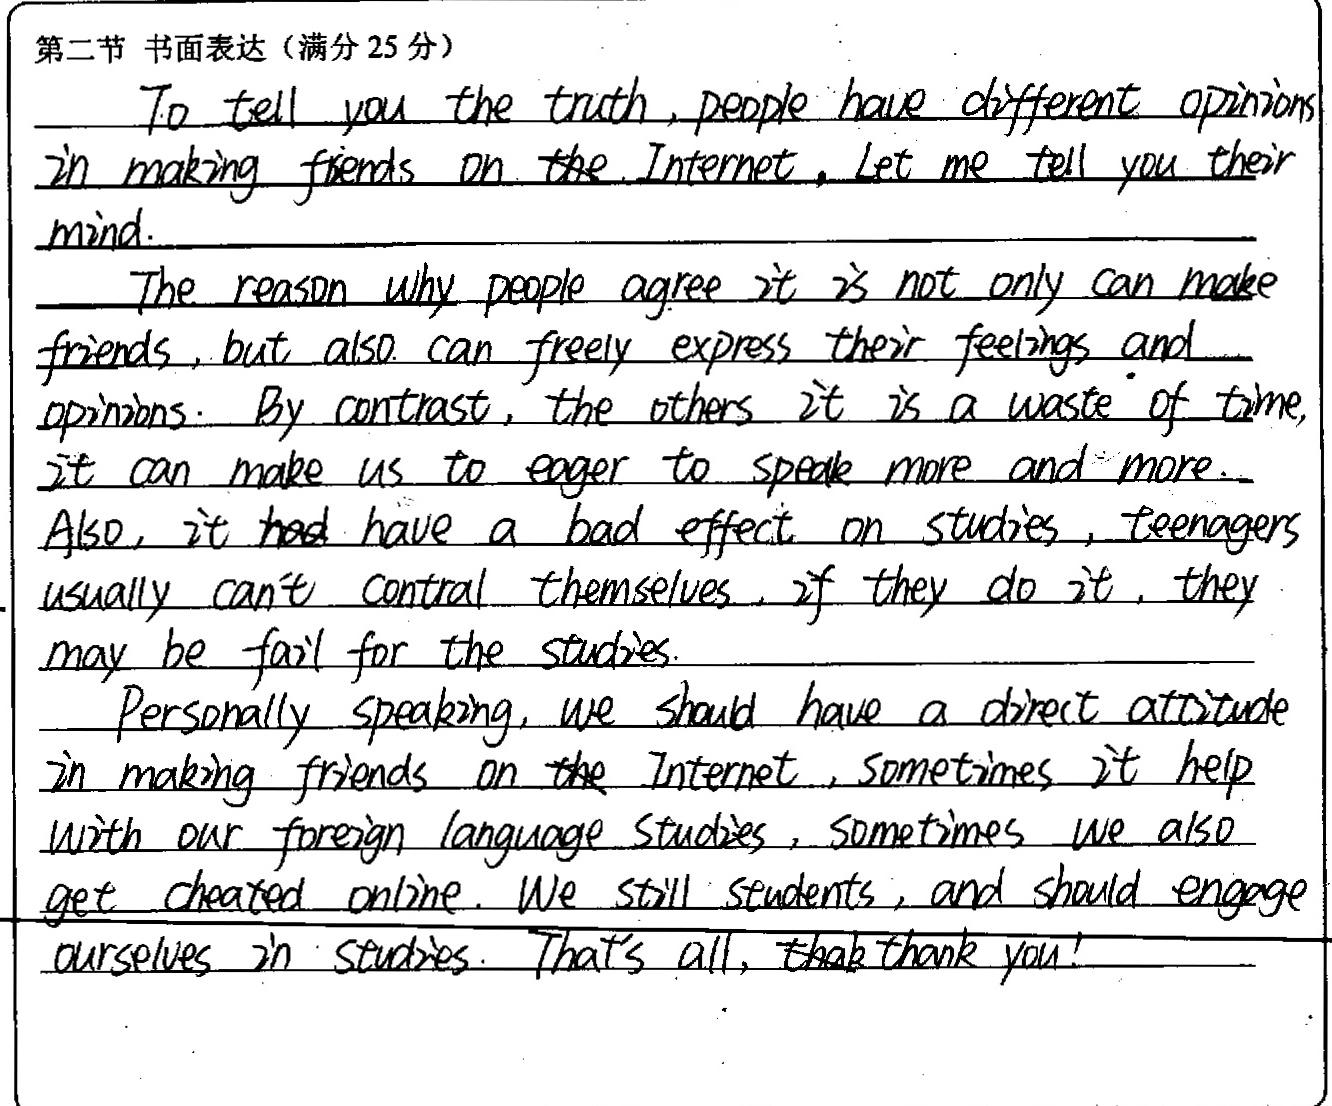 第二节 书面表达（满分 25 分）
To tell you the truth, people have different opinions
in making friends on the Internet. Let me tell you their
mind.
The reason why people agree it is not only can make
friends, but also can freely express their feelings and
opinions. By contrast, the others it is a waste of time,
it can make us to eager to speak more and more.
Also, it had have a bad effect on studies, teenagers
usually can't contral themselves, if they do it, they
may be fail for the studies.
Personally speaking, we should have a direct attitude
in making friends on the Internet, sometimes it help
with our foreign language studies, sometimes we also
get cheated online. We still students, and should engage
ourselves in studies. That's all, thak thank you!